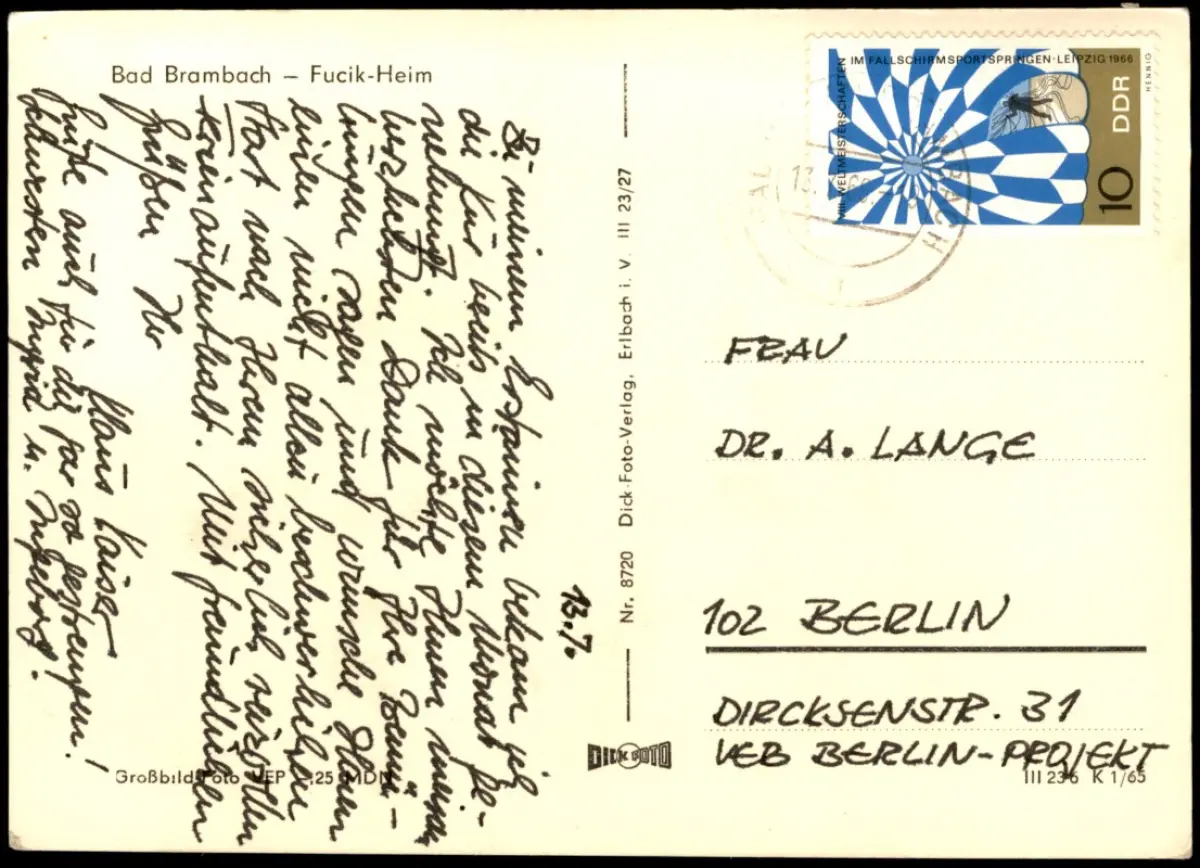 Bad Brambach – Fucik-Heim
13.7.
Zu meinem Erstaunen bekam ich
die Kur bereits in diesem Monat ge-
nehmigt. Ich möchte Ihnen meinen
herzlichsten Dank für Ihre Bemü-
hungen sagen und wünsche Ihnen
einen nicht allzu beschwerlichen
Start nach Ihrem
Mit freundlichen
Grüßen Ihr
Klaus Kaiser
Grüße auch für die gar so gestrengen!
Schwestern Ingrid u. Ingeborg!
Großbild-Foto VEP -,25 MDN
Nr. 8720 Dick-Foto-Verlag, Erlbach i. V. III 23/27
DICK FOTO
VIII. WELTMEISTERSCHAFTEN
IM FALLSCHIRMSPORTSPRINGEN · LEIPZIG 1966
HENNIG
DDR
10
FRAU
DR. A. LANGE
102 BERLIN
DIRCKSENSTR. 31
VEB BERLIN-PROJEKT
III 236 K 1/65